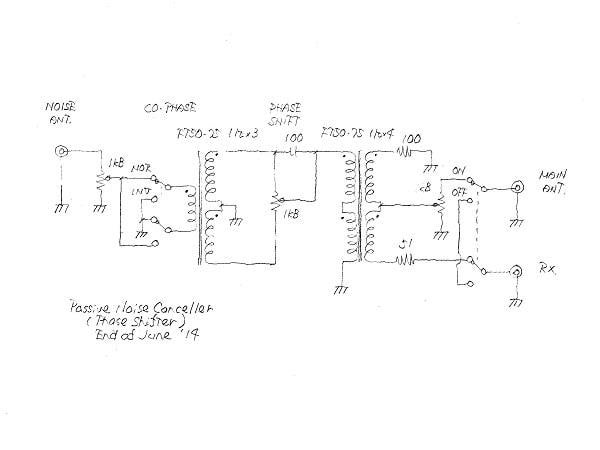 NOISE
ANT.
CO-PHASE
FT50-75 11t×3
PHASE
SHIFT
100
FT50-75 11t×4
100
1kB
NOR
INV
1kB
ON
OFF
MAIN
ANT.
51
RX
Passive Noise Canceller
(Phase Shifter)
End of June '14